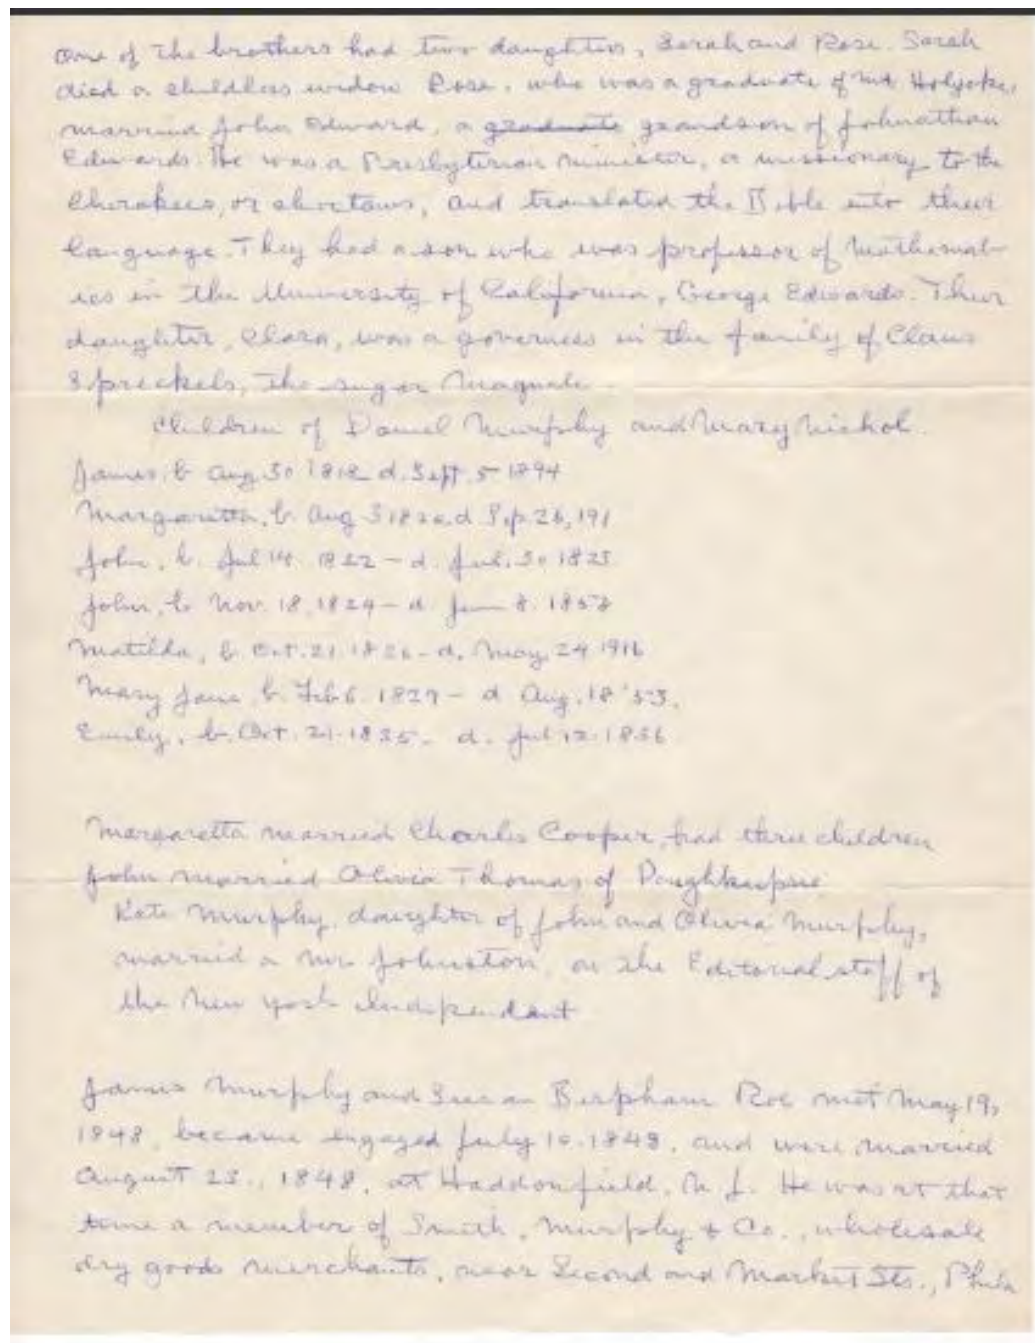 One of the brothers had two daughters, Sarah and Rose. Sarah
died a childless widow Rose, who was a graduate of Mt Holyoke,
married John Edward, a graduate grandson of Johnathan
Edwards. He was a Presbyterian Minister, a missionary to the
Cherokees, or choctaws, and translated the Bible into their
language. They had a son who was professor of Mathemat-
ics in the University of California, George Edwards. Their
daughter, Clara, was a governess in the family of Claus
Spreckels, the sugar Magnate.
Children of Daniel Murphy and Mary Nichol.
James, b Aug 30 1818 d. Sept. 5 1894
Margaretta, b. Aug 3 d Sep. 26, 191
John, b. Jul 14. 1822 - d. Jul. 30 1823
John, b Nov. 18, 1824 - d 8. 1853
Matilda, b. Oct. 21 1826 - d. May, 24 1916
Mary Jane, b. Feb 6. 1829 - d Aug. 18 '53.
Emily, b. Oct. 21. 1835 - d. Jul 12. 1836
Margaretta married Charles Cooper, had three children
John married Olivia Thomas of Poughkeepsie
Kate Murphy, daughter of John and Olivia Murphy,
married a Mr Johnston, on the Editorial staff of
the New York Independent
James Murphy and Susan Bispham Roe met May 19,
1848, became engaged July 10. 1848, and were married
August 23., 1848, at Haddonfield, N. J. He was at that
time a member of Smith, Murphy & Co., wholesale
dry goods merchants, near Second and Market Sts., Phila